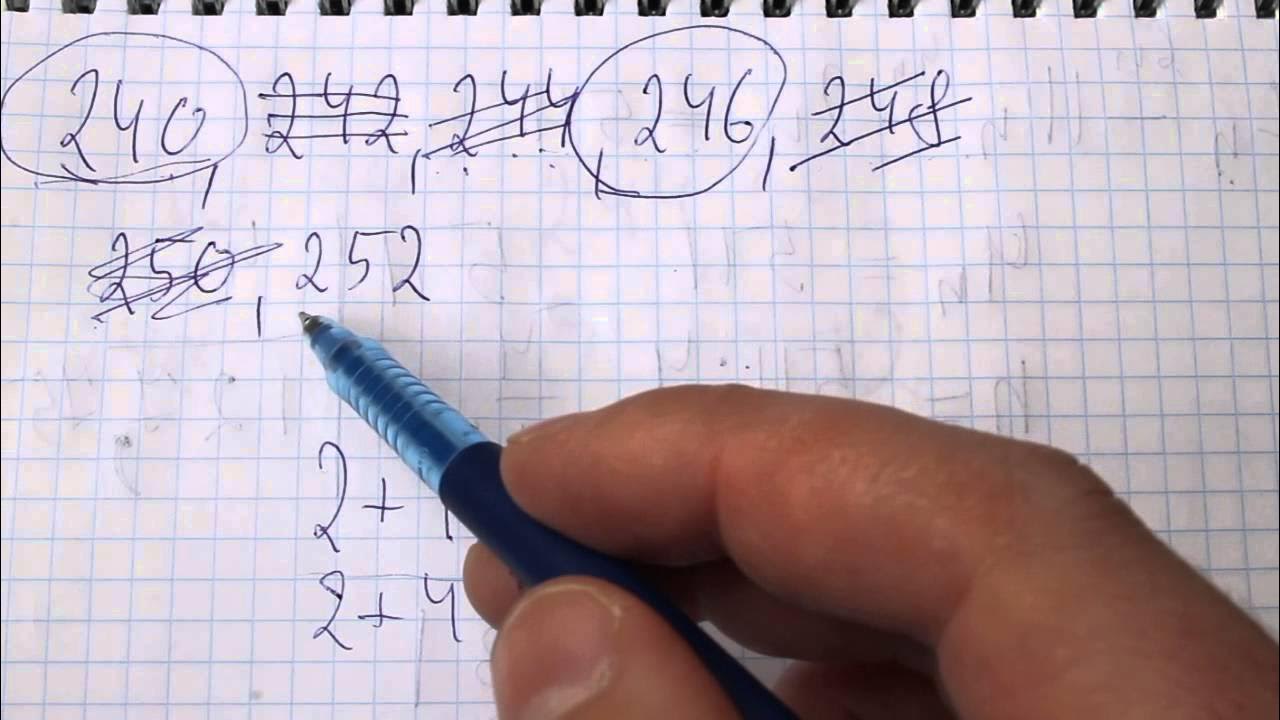 240, 242, 244, 246, 248
250, 252
2 +
2 + 4